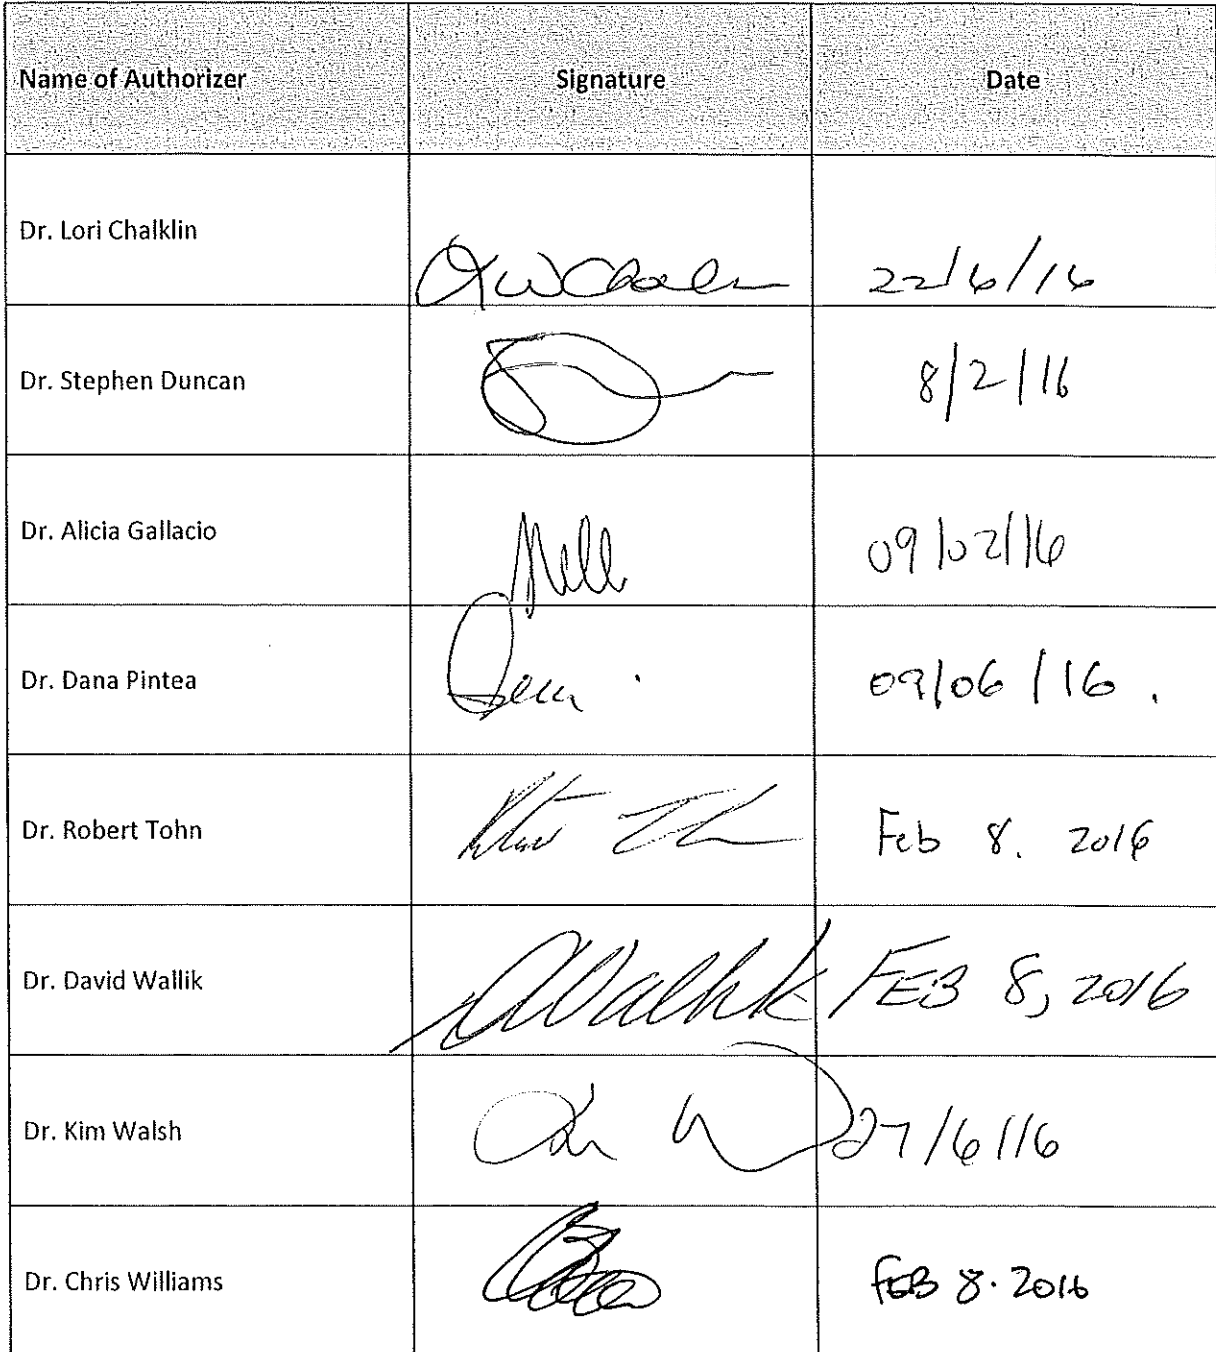 Name of Authorizer Signature Date
Dr. Lori Chalklin 22/6/16
Dr. Stephen Duncan 8/2/16
Dr. Alicia Gallacio 09/02/16
Dr. Dana Pintea 09/06/16.
Dr. Robert Tohn Feb 8. 2016
Dr. David Wallik DWallik FEB 8, 2016
Dr. Kim Walsh 27/6/16
Dr. Chris Williams FEB 8. 2016